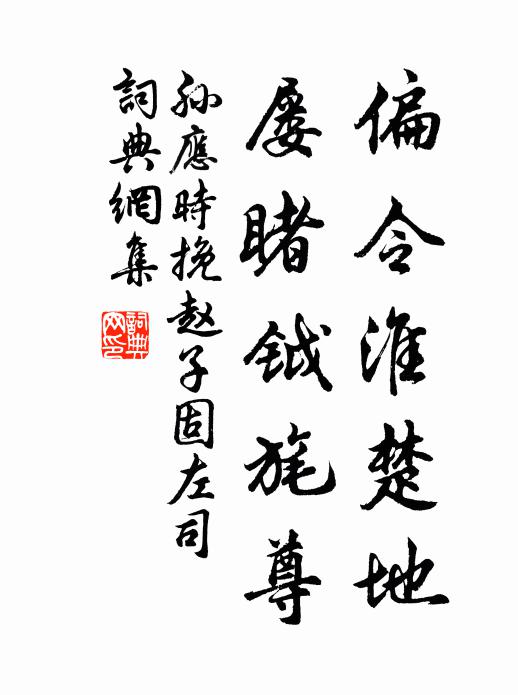 偏令淮楚地
屡睹钺旄尊
孙應時挽赵子固左司
詞典網集
詞典
网印